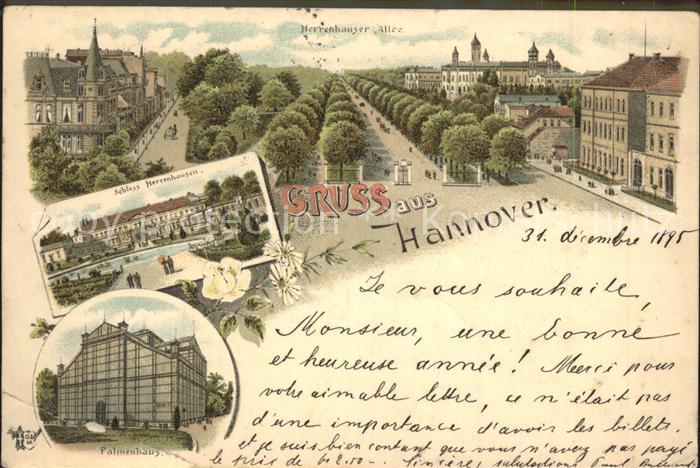 Herrenhauser Allee.
Schloss Herrenhausen.
GRUSS aus
Hannover.
31. décembre 1895
Je vous souhaite,
Monsieur, une bonne
et heureuse année! Merci pour
votre aimable lettre, ce n'était pas
d'une importance d'avoir les billets.
et je suis bien content que vous n'avez pas payé
le prix de 2.00.— Sincères salutations
Palmenhaus.